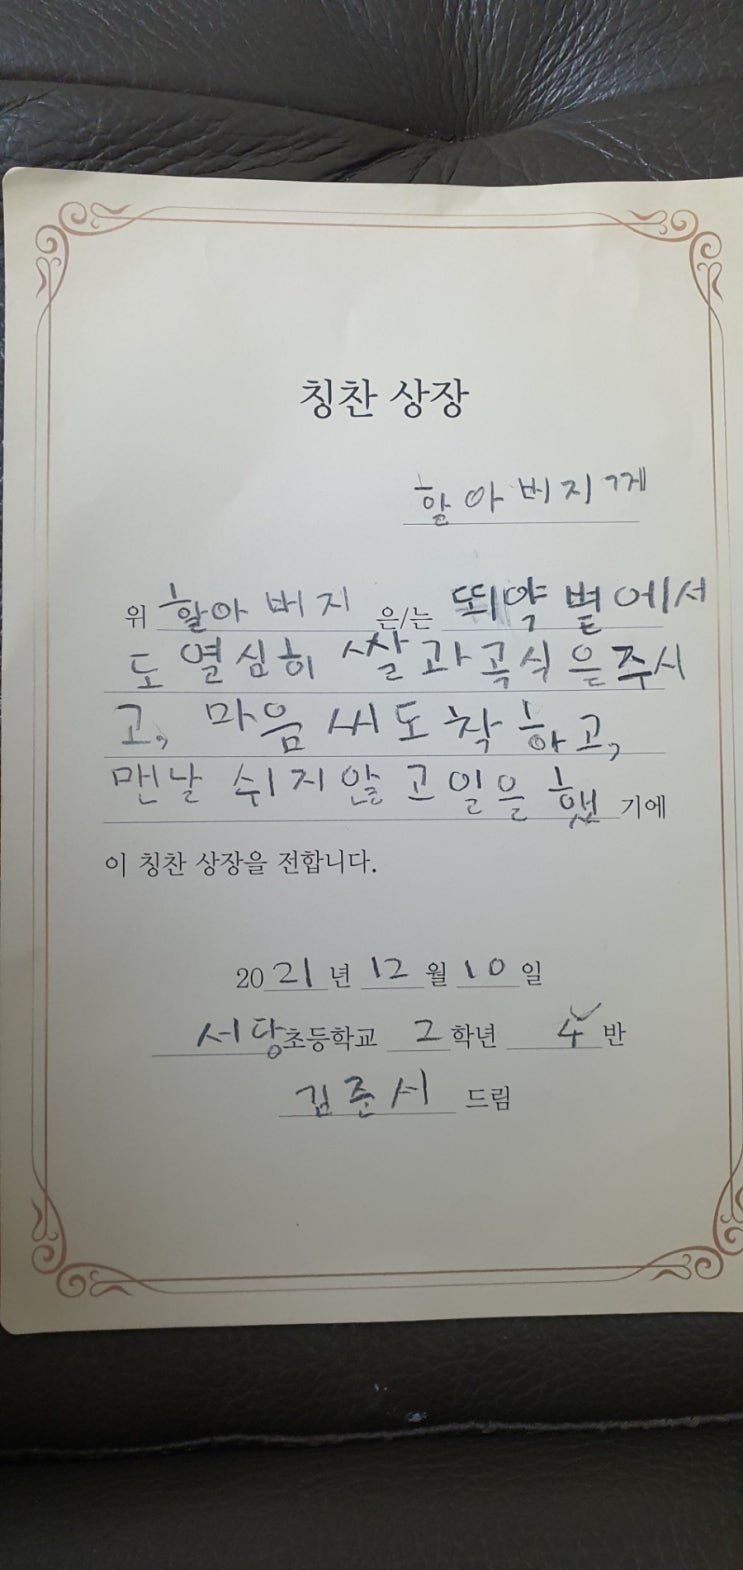 칭찬 상장
할아버지께
위 할아버지 은/는 뙤약볕에서
도 열심히 쌀과곡식을주시
고, 마음씨도 착하고,
맨날 쉬지않고 일을 했 기에
이 칭찬 상장을 전합니다.
2021년 12월 10일
서당초등학교 2학년 4반
김준서 드림